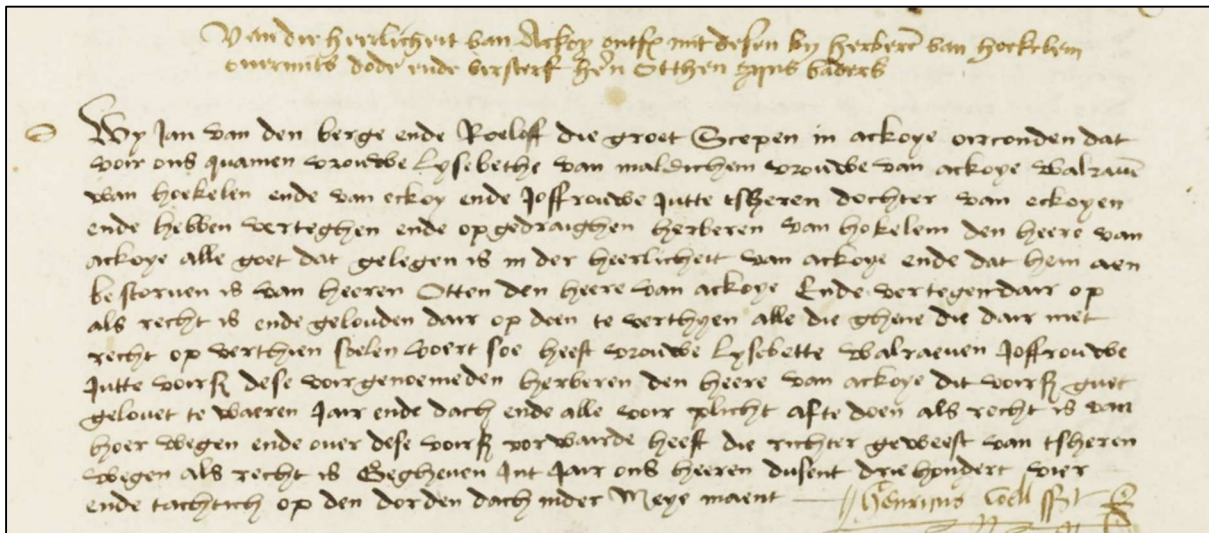 Van die heerlicheit van Ackoy ontfx mit desen by herberen van hoekelem
overmits dode ende versterf hern Otthen zyns vaders
Wy Jan van den berge ende Roeloff die groet Scepen in ackoye oirconden dat
voir ons quamen vrouwe Lysebethe van maldichem vrouwe van ackoye walraven
van hoekelen ende van eckoy ende Joffrouwe Jutte tsheren dochter van eckoyen
ende hebben verteghen ende opgedraighen herberen van hokelem den heere van
ackoye alle goet dat gelegen is in der heerlicheit van ackoye ende dat hem aen
bestorven is van heeren Otten den heere van ackoye Ende vertegen dair op
als recht is ende gelouden dair op doen te verthyen alle die ghene die dair met
recht op verthien soelen Voert soe heeft vrouwe Lysebette walraeven Joffrouwe
Jutte voirs dese voirgenoemeden herberen den heere van ackoye dit voirs guet
gelovet te waeren Jair ende dach ende alle voir plicht afte doen als recht is van
hoer wegen ende over dese voirs vorwairde heeft die richter geweest van tsheren
wegen als recht is Gegheven Int Jair ons heeren dusent driehondert vier
ende tachtich op den dorden dach inder Meye maent Henricus